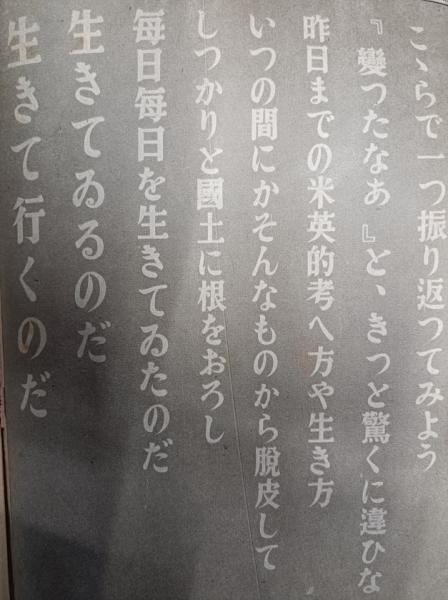 こゝらで一つ振り返つてみよう
『變つたなあ』と、きつと驚くに違ひな
昨日までの米英的考へ方や生き方
いつの間にかそんなものから脱皮して
しつかりと國土に根をおろし
毎日毎日を生きてゐたのだ
生きてゐるのだ
生きて行くのだ